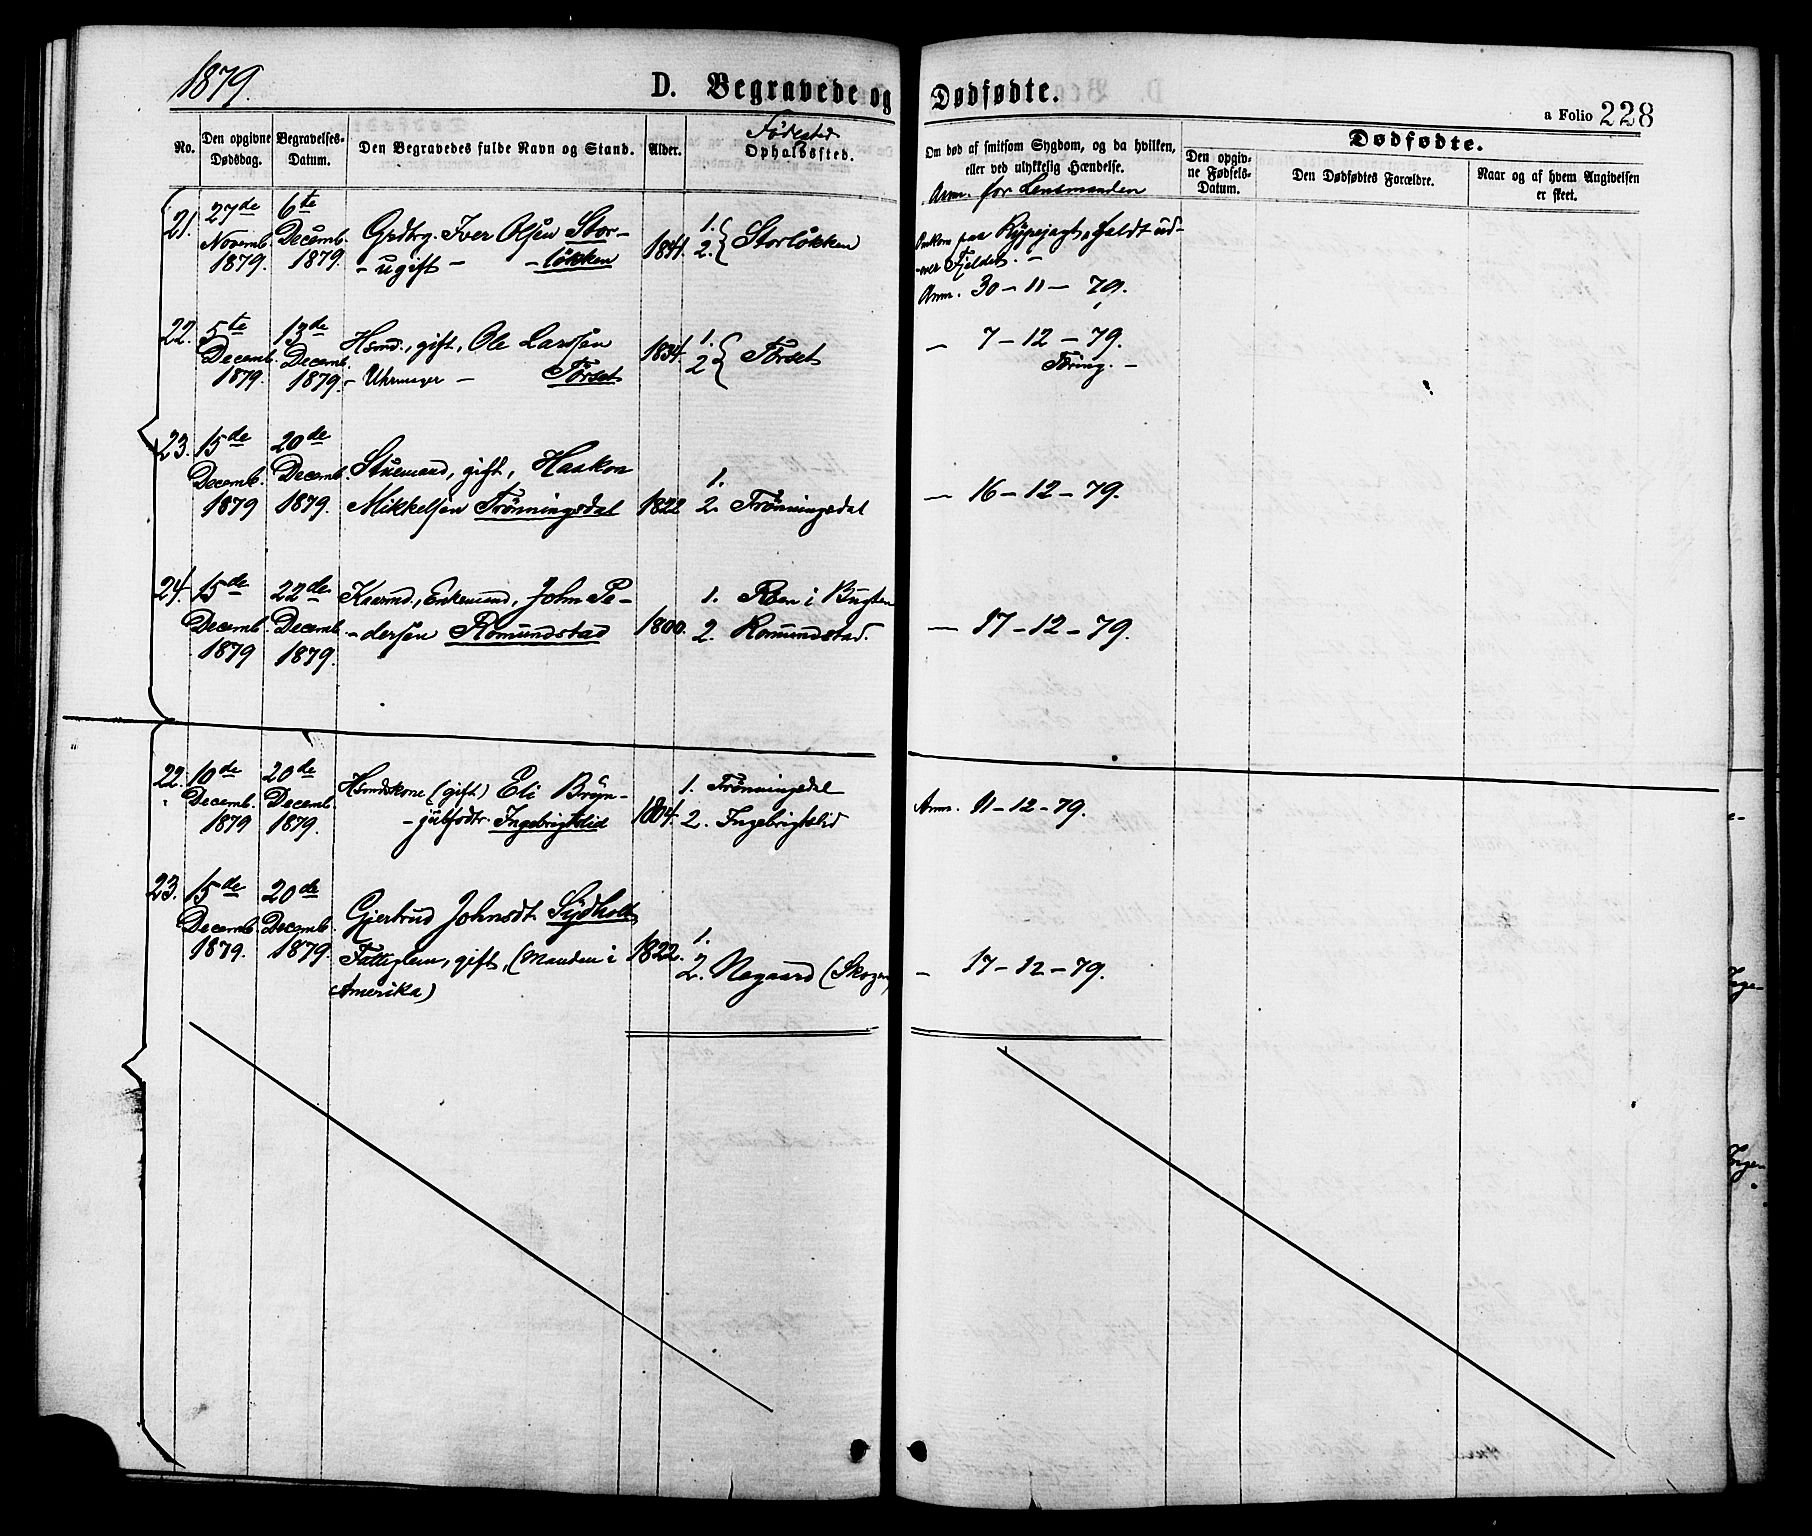 1879.
D. Begravede og Dødfødte.
a Folio 228
No.
Den opgivne Dødsdag.
Begravelses-Datum.
Den Begravedes fulde Navn og Stand.
Alder.
Fødested
Opholdssted.
Om død af smitsom Sygdom, og da hvilken,
eller ved ulykkelig Hændelse.
Anm. for Lensmanden
Dødfødte.
Den opgiv-
ne Fødsels-
Datum.
Den Dødfødtes Forældre.
Naar og af hvem Angivelsen
er skeet.
21. 27de 6te
Novemb. Decemb. Grdbrg. Iver Olsen Stor- 1841. 1. 2. { Storløkken
1879. 1879. - ugift - - løkken
Omkom paa Rypejagt, faldt ud-
over Fjeldet. -
Anm. 30 - 11 - 79.
22. 5te 13de Hsmd., gift, Ole Larssen 1834. 1. 2 { Tørset
Decemb. Decemb.
1879. 1879. - Uhrmager - Tørset
- 7 - 12 - 79.
Tæring. -
23. 15de 20de
Decemb. Decemb. Stuemand, gift, Haakon 1.
1879 1879. Mikkelsen Trønningsdal 1822 2. Trønningsdal
- 16 - 12 - 79.
24. 15de 22de Kaarmd., Enkemand, John Pe- 1. Røen i Bugten
Decemb. Decemb. - dersen Romundstad 1800. 2. Romundstad.
1879 1879.
- 17 - 12 - 79.
22. 10de 20de Hsmdskone (gift) Eli Bryn- 1. Trønningsdal
Decemb. Decemb. - julfsdtr. Ingebrigtslid 1804. 2. Ingebrigtslid
1879 1879.
Anm. 11 - 12 - 79.
23. 15de 20de
Decemb. Decemb. Gjertrud Johnsdt. Sydhalt 1.
1879. 1879. Fattiglem, gift, (Manden i 1822. 2. Nøgaard (Skogen)
Amerika)
- 17 - 12 - 79.
Inge-
Ingen